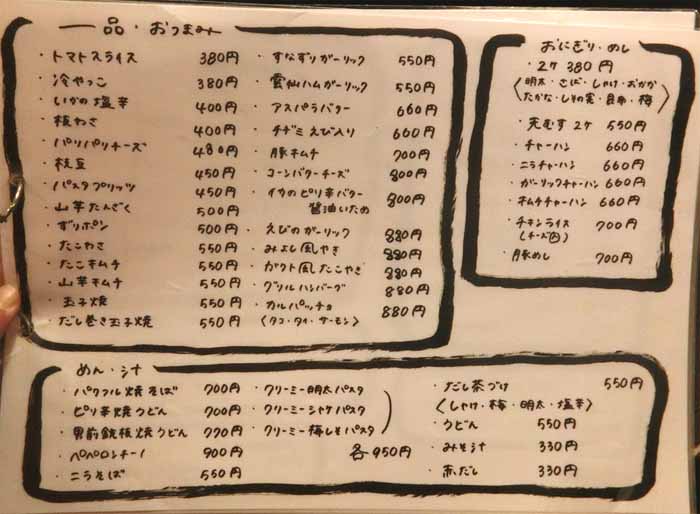 一品・おつまみ
・トマトスライス 380円
・冷やっこ 380円
・いかの塩辛 400円
・板わさ 400円
・パリパリチーズ 480円
・枝豆 450円
・パスタプリッツ 450円
・山芋たんざく 500円
・ずりポン 500円
・たこわさ 550円
・たこキムチ 550円
・山芋キムチ 550円
・玉子焼 550円
・だし巻き玉子焼 550円
・すなずりガーリック 550円
・雲仙ハムガーリック 550円
・アスパラバター 660円
・チヂミえび入り 660円
・豚キムチ 700円
・コーンバターチーズ 800円
・イカのピリ辛バター
醤油いため 800円
・えびのガーリック 880円
・みよし風やき 880円
・ガウト風たこやき 880円
・グリルハンバーグ 880円
・カルパッチョ 880円
〈タコ・タイ・サーモン〉
おにぎり・めし
・2ケ 380円
〈明太・さば・しゃけ・おかか
たかな・しその実・昆布・梅〉
・天むす2ケ 550円
・チャーハン 660円
・ニラチャーハン 660円
・ガーリックチャーハン 660円
・キムチチャーハン 660円
・チキンライス 700円
(チーズ内)
・豚めし 700円
めん・汁
・パワフル焼そば 700円
・ピリ辛焼うどん 700円
・男前鉄板焼うどん 770円
・ペペロンチーノ 900円
・ニラそば 550円
・クリーミー明太パスタ
・クリーミーシャケパスタ
・クリーミー梅しそパスタ
各950円
・だし茶づけ 550円
〈しゃけ・梅・明太・塩辛〉
・うどん 550円
・みそ汁 330円
・赤だし 330円